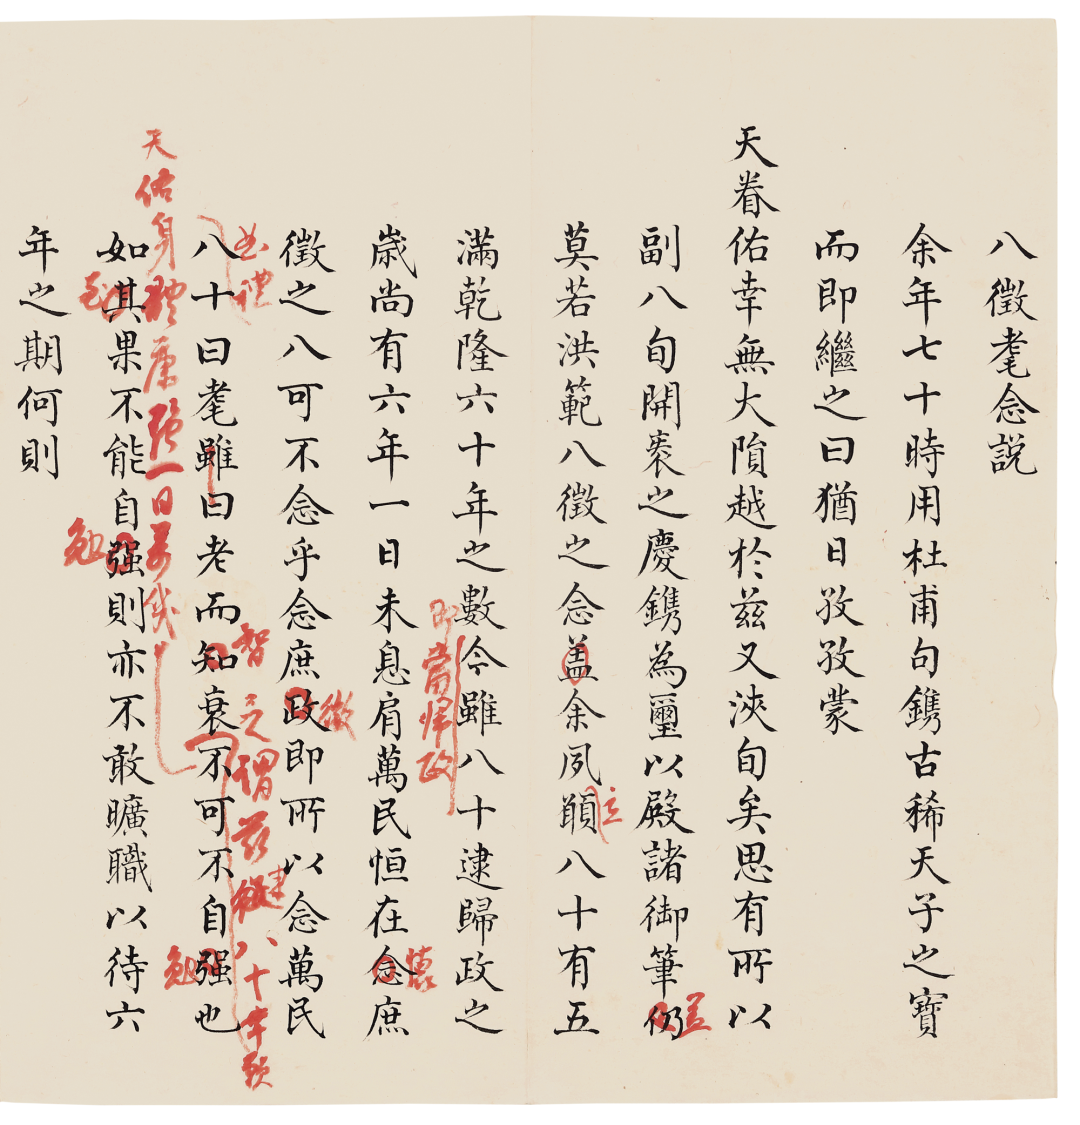 八徵耄念説
余年七十時用杜甫句鐫古稀天子之寶
而即繼之曰猶日孜孜蒙
天眷佑幸無大隕越於兹又浹旬矣思有所以
副八旬開袠之慶鐫為璽以殿諸御筆仍
盖
莫若洪範八徵之念盖余夙願八十有五
立
滿乾隆六十年之數今雖八十逮歸政之
即當歸政
歲尚有六年一日未息肩萬民恒在念庶
懷
徵之八可不念乎念庶政即所以念萬民
徵
八十曰耄雖曰老而知衰不可不自强也
曲禮
智之謂兹健八十幸賴
勉
天佑身體康强一日萬幾
如其果不能自强則亦不敢曠職以待六
勉
年之期何則